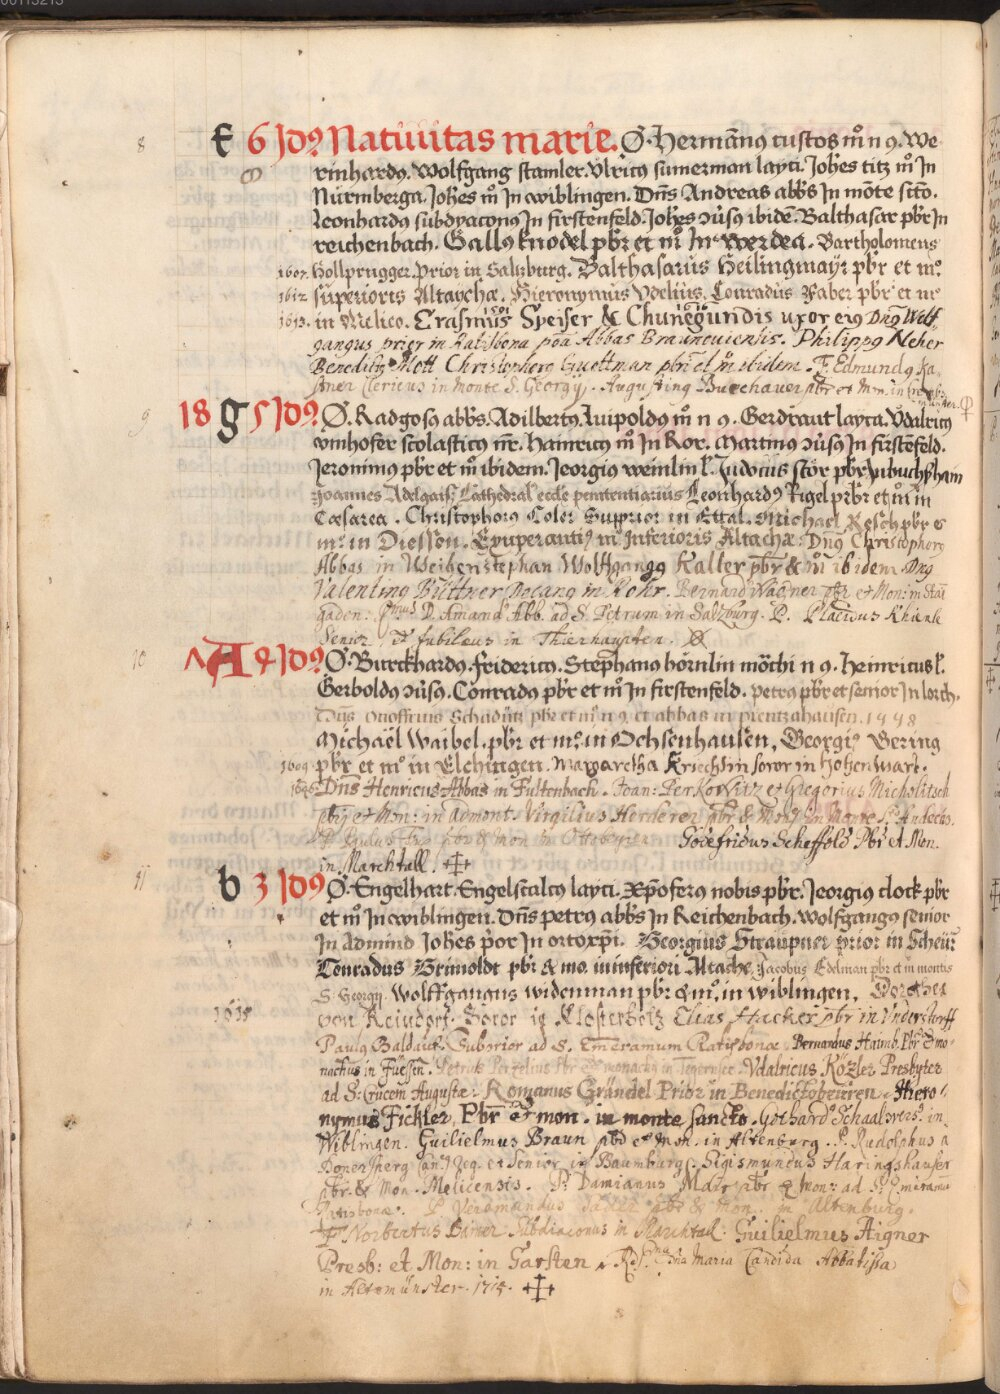 8 f 6 Jdꝰ Natiuitas marie. O. Hermānꝰ custos m̄ n ꝯ. We-
rinhardꝰ. Wolfgang stamler. Vlricꝰ sumerman layci. Joh̄es titz m̊ Jn
Nürmberga. Joh̄es m̊ Jn wiblingen. Dn̄s Andreas abb̄s Jn mōte sct̄o.
Leonhardꝰ subdyaconꝰ Jn firstenfeld. Joh̄es ibidē. Balthasar pb̄r Jn
reichenbach. Gallꝰ knodel pb̄r et m̊ Jn Werdea. Bartholomeus
1607. Hollprugger. Prior in Saltzburg. Balthasarus Heilingmayr pbr et m̊.
1612 superioris Altaychæ. Hieronymus Vdelius. Conradus Faber pbr et m̊
1613. in Melico. Erasmus Speiser & Chunegundis uxor eiꝰ Dnꝰ Wolf-
gangus prior in Ratisbona poā Abbas Braunouiensis. Philippꝰ Neher
Benedictꝰ Mott Christophorꝰ Guettman pbri et m̄ itidem. F. Edmundꝰ Ka-
stner Clericus in monte S. Georgij. Augustinꝰ Buechauer pbr et Mon. in
9 18 g 5 Jdꝰ. O. Radgosꝰ abb̄s. Adilbertꝰ. Luipoldꝰ m̄ n ꝯ. Gerdraut layca. Vdalricꝰ
vmhofer scolasticꝰ nr̄. Hainricꝰ m̊ Jn Ror. Martinꝰ Jn firstēfeld.
Jeronimꝰ pb̄r et m̊ ibidem. Jeorgiꝰ weinlin l. Judocus stör pb̄r Jn buchsHaim
Joannes Adelgais Cathedral: eccl̄e penitentiarius Leonhardꝰ Rigel prb̄r et m̊ in
Cæsarea. Christophorꝰ Coler Supprior in Ettal. Michael Resch pb̄r &
m̊ in Diessen. Exuperantiꝰ m̊ Inferioris Altachæ. Dnꝰ Christophorꝰ
Abbas in Weihenstephan Wolfgangꝰ Kalter pbr & m̊ ibidem. Dnꝰ
Valentinꝰ Büttner Decanꝰ in Rohr. Bernard Wagner pbr et Mon: in
gaden. D. Amand Abb. ad S. Petrum in Saltzburg. P. Placidus Khienle
Senior et Jubilæus in Thierhaupten.
10 A 4 Jdꝰ O. Burckhardꝰ. fridericꝰ. Stephanꝰ börnlin mōchi n ꝯ. Heinricus l.
Gerboldꝰ. Conradꝰ pb̄r et m̊ Jn firstenfeld. petrꝰ pb̄r et senior Jn lorch.
Dn̄s Onoffrius Schadütz pbr et m̊ n ꝯ. et abbas in pientzahausen. 1448
Michaël Waibel. pb̄r et m̊. in Ochsenhausen, Georgiꝰ Gering
1609. pb̄r et m̊ in Elchingen. Margaretha Kriechlin soror in Hohenwart.
Dn̄s Henricus Abbas in Fultenbach. Joan: Perkovitz et Gregorius Micholitsch
pbri et Mon: in Admont. Virgilius Herderer pbr & Mon: in Monte S. Andechs.
P. Paulus pbr & mon in Ottobeyren Godefridus Scheffold Pbr et Mon.
in Marchtall.
11 b 3 Jdꝰ O. Engelhart. Engelscalcꝰ layci. Xp̄oferꝰ nobis pb̄r. Jeorgiꝰ clock pb̄r
et m̊ Jn wiblingen. Dn̄s petrꝰ abb̄s Jn Reichenbach. Wolfgangꝰ senior
Jn Admind Joh̄es p̊or Jn ortoxp̄i. Georgius Straupner prior in Scheur
Conradus Grimoldt pb̄r & mo. in inferiori Altache, Jacobus Edelman pbr et m̊ montis
S. Georgij. Wolffgangus widenman pb̄r & m̊. in wiblingen. Dorothea
1615 von Reindorf Soror in Closterholz Elias Hacker pbr in Vndersdorff
Paulꝰ Balduff. Subprior ad S. Emeramum Ratisbonæ. Bernardus Haimb. Pbr & mo-
nachus in Füessen. Petrus Penzelius Pbr & monachꝰ in Tegernsee. Vdalricus Közler Presbyter
ad S: Crucem Augustæ: Romanus Gründel Prior in Benedictobeüren. Hiero-
nymus Fickler, Pbr et mon. in monte sancto. Gothard Schaalwers: in
Wiblingen. Guilielmus Braun pbr et Mon. in Altenburg. P. Rudolphus a
Donersperg Can: Reg. et Senior in Baumburg. Sigismundus Haringshauser
pbr & Mon. Melicensis. P. Damianus Mair pbr & Mon: ad S. Emeramū
Ratisbonæ. P. Veremundus pbr & mon. in Altenburg.
F. Norbertus Baur Subdiaconus in Marchtall. Guilielmus Aigner
Presb: et Mon: in Garsten. Rdma Dna Maria Candida Abbatissa
in Altomünster. 1715.